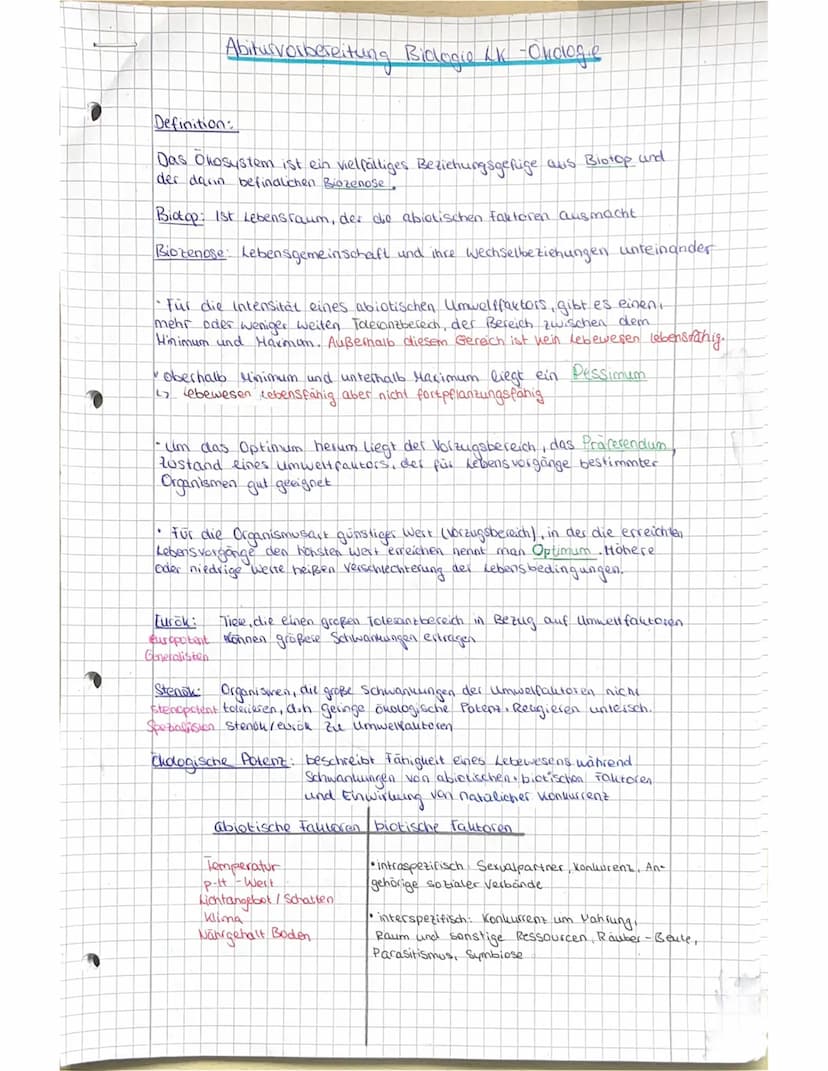 Abiturvorbereitung Biologie LK - Ökologie
Definition:
Das Ökosystem ist ein vielfältiges Beziehungsgefüge aus Biotop und
der darin befindlichen Biozenose.
Biotop: Ist Lebensraum, der die abiotischen Faktoren ausmacht
Biozenose: Lebensgemeinschaft und ihre Wechselbeziehungen untereinander
· Für die Intensität eines abiotischen Umweltfaktors, gibt es einen,
mehr oder weniger weiten Toleranzbereich, der Bereich zwischen dem
Minimum und Maximan. Außerhalb diesem Bereich ist kein Lebewesen lebensfähig.
oberhalb Minimum und unterhalb Maximum liegt ein Pessimum
↳ Lebewesen lebensfähig aber nicht fortpflanzungsfähig
· Um das Optimum herum liegt der Vorzugsbereich, das Präferendum,
Zustand eines Umweltfaktors, der für Lebensvorgänge bestimmter
Organismen gut geeignet
· Für die Organismusart günstiger Wert (Vorzugsbereich), in der die erreichten
Lebensvorgänge den höhsten Wert erreichen nennt man Optimum. Höhere
oder niedrige Werte heißen Verschlechterung der Lebensbedingungen.
Eurök: Tiere, die einen großen Toleranzbereich in Bezug auf Umweltfaktoren
europotent können größere Schwankungen ertragen
Generalisten
Stenök: Organismen, die große Schwankungen der Umweltfaktoren nicht
stenopotent tolerieren, d.h geringe ökologische Potenz. Reagieren untersch.
Spezialisten stenök/euriök zu Umweltfaktoren
Ökologische Potenz: beschreibt Fähigkeit eines Lebewesens während
Schwankungen von abiotischen + biotischen Faktoren
und Einwirkung von natürlicher Konkurrenz
abiotische Faktoren | biotische Faktoren
Temperatur
p-H-Wert
Lichtangebot / Schatten
Klima
Nährgehalt Boden
• intraspezifisch: Sexualpartner, Konkurenz, An-
gehörige sozialer Verbände
• interspezifisch: Konkurrenz um Nahrung,
Raum und sonstige Ressourcen, Räuber-Beute,
Parasitismus, Symbiose